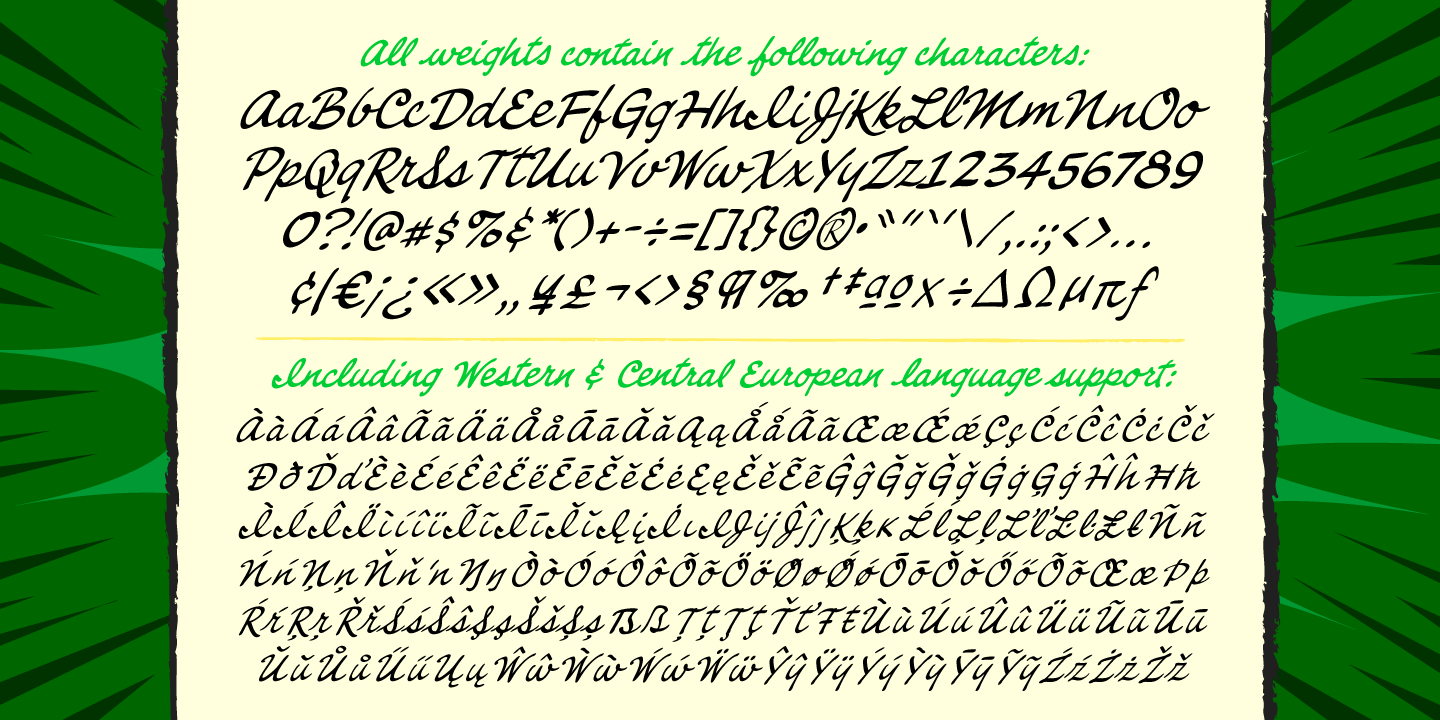 All weights contain the following characters:
AaBbCcDdEeFfGgHhIiJjKkLlMmNnOo
PpQqRrSsTtUuVvWwXxYyZz123456789
0?!@#$%&*()+-÷=[]{}©®•“”‘’\/,.:;<>...
¢|€¡¿«»„¥£¬<>§¶‰†‡ªºx÷∆Ωµπƒ
Including Western & Central European language support:
ÀàÁáÂâÃãÄäÅåĀāĂăĄąǺǻÃãÆæǼǽÇçĆćĈĉĊċČč
ÐðĎďÈèÉéÊêËëĒēĔĕĖėĘęĚěẼẽĜĝĞğǦǧĠġĢģĤĥĦħ
ÌÍÎÏìíîïĨĩĪīĬĭĮįİıIJijĴĵȷĶķĸĹĺĻļĽľĿŀŁłÑñ
ŃńŅņŇňŉŊŋÒòÓóÔôÕõÖöØøǾǿŌōŎŏŐőÕõŒœÞþ
ŔŕŖŗŘřŚśŜŝŞşŠšȘșẞßȚțŢţŤťŦŧÙùÚúÛûÜüŨũŪū
ŬŭŮůŰűŲųŴŵẀẁẂẃẄẅŶŷŸÿÝýỲỳȲȳỸỹŹźŻżŽž